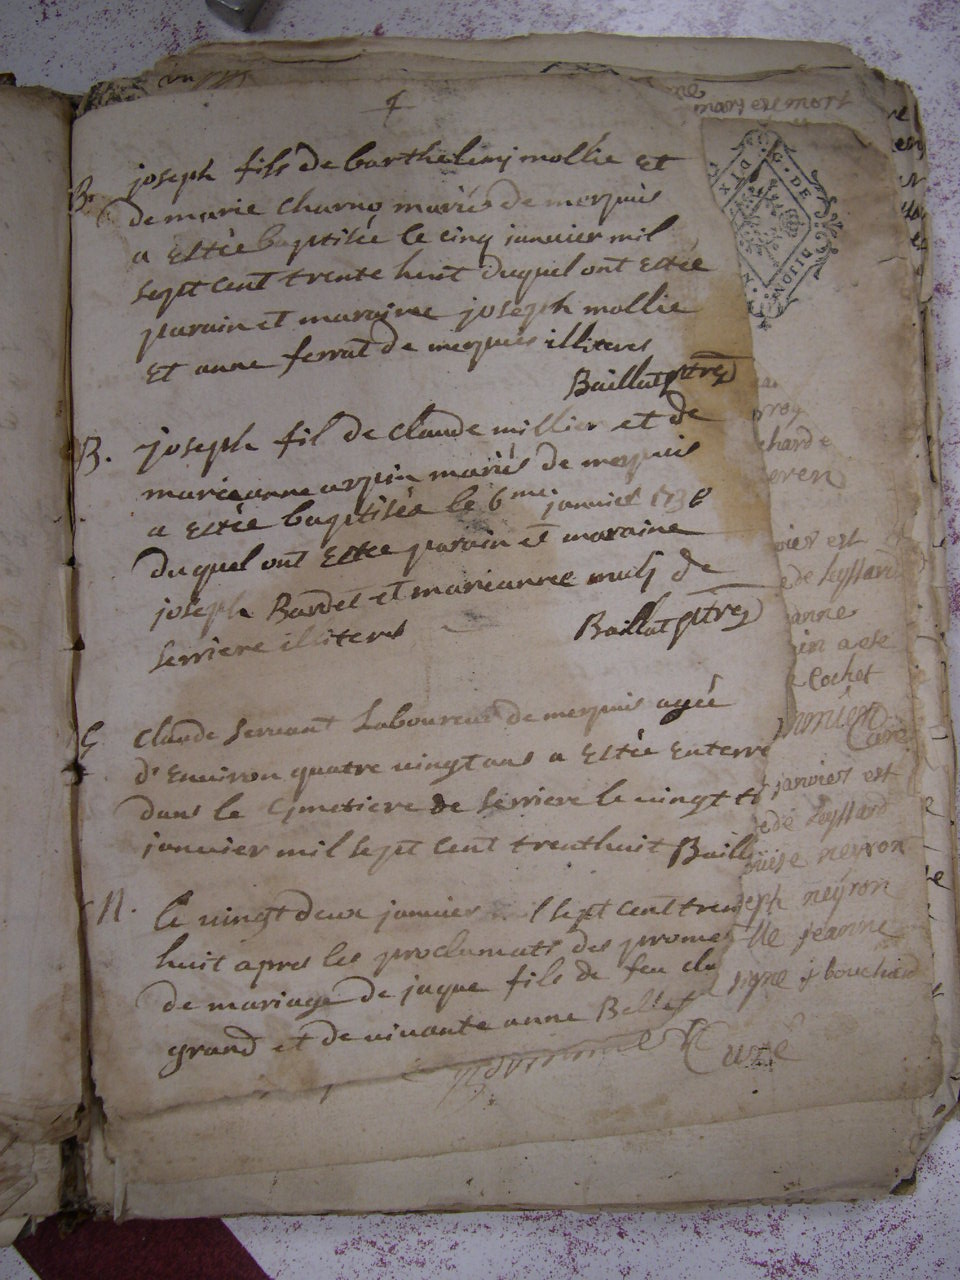 B. joseph fils de barthelemj mollie et
de marie charno mariés de merpuis
a estée baptisée le cinq januier mil
sept cent trente huit duquel ont estée
parain et maraine joseph mollie
et anne ferrat de merpuis illiteres
Baillat ptre
B. joseph fil de claude millier et de
marieanne arpin mariés de merpuis
a estée baptisée le 6me januier 1738
duquel ont estée parain et maraine
joseph Bardet et marianne de
serriere illiteres Baillat ptre
claude seruant laboureur de merpuis agée
d'enuiron quatre uingt ans a estée enterre
dans le cymetiere de serriere le uingt
januier mil sept cent trenthuit Baill
N. le uingt deux januier l sept cent tren
huit apres les proclamats des promes
de mariage de jaque fils de feu cla
grand et de uiuante anne Bellet
mary est mort
G. DE DIJON
DIX
charde
uier est
de leyssard
anne
in a ete
Cochet
Curé
januier est
de leyssard
ouise neyron
eph neyron
lle jeanne
signe j bouchard
Curé